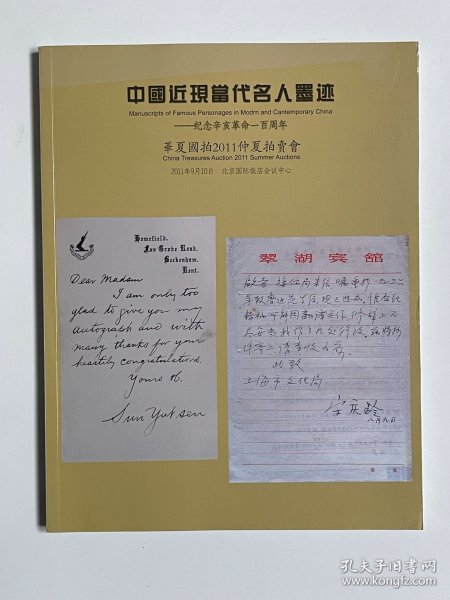 中國近現當代名人墨迹
Manuscripts of Famous Personages in Modrn and Cantemporary China
——纪念辛亥革命一百周年
華夏國拍2011仲夏拍賣會
China Treasures Auction 2011 Summer Auctions
2011年9月10日 北京国际饭店会议中心
Homefield,
Fox Grove Road,
Beckenham,
Kent.
Dear Madam
I am only too
glad to give you my
autograph and with
many thanks for your
heartily congratulations.
Yours &c.
Sun Yat sen
翠湖宾舘
此致
上海市文化局
宋庆龄
八月九日
孔夫子旧书网
www.kongfz.com